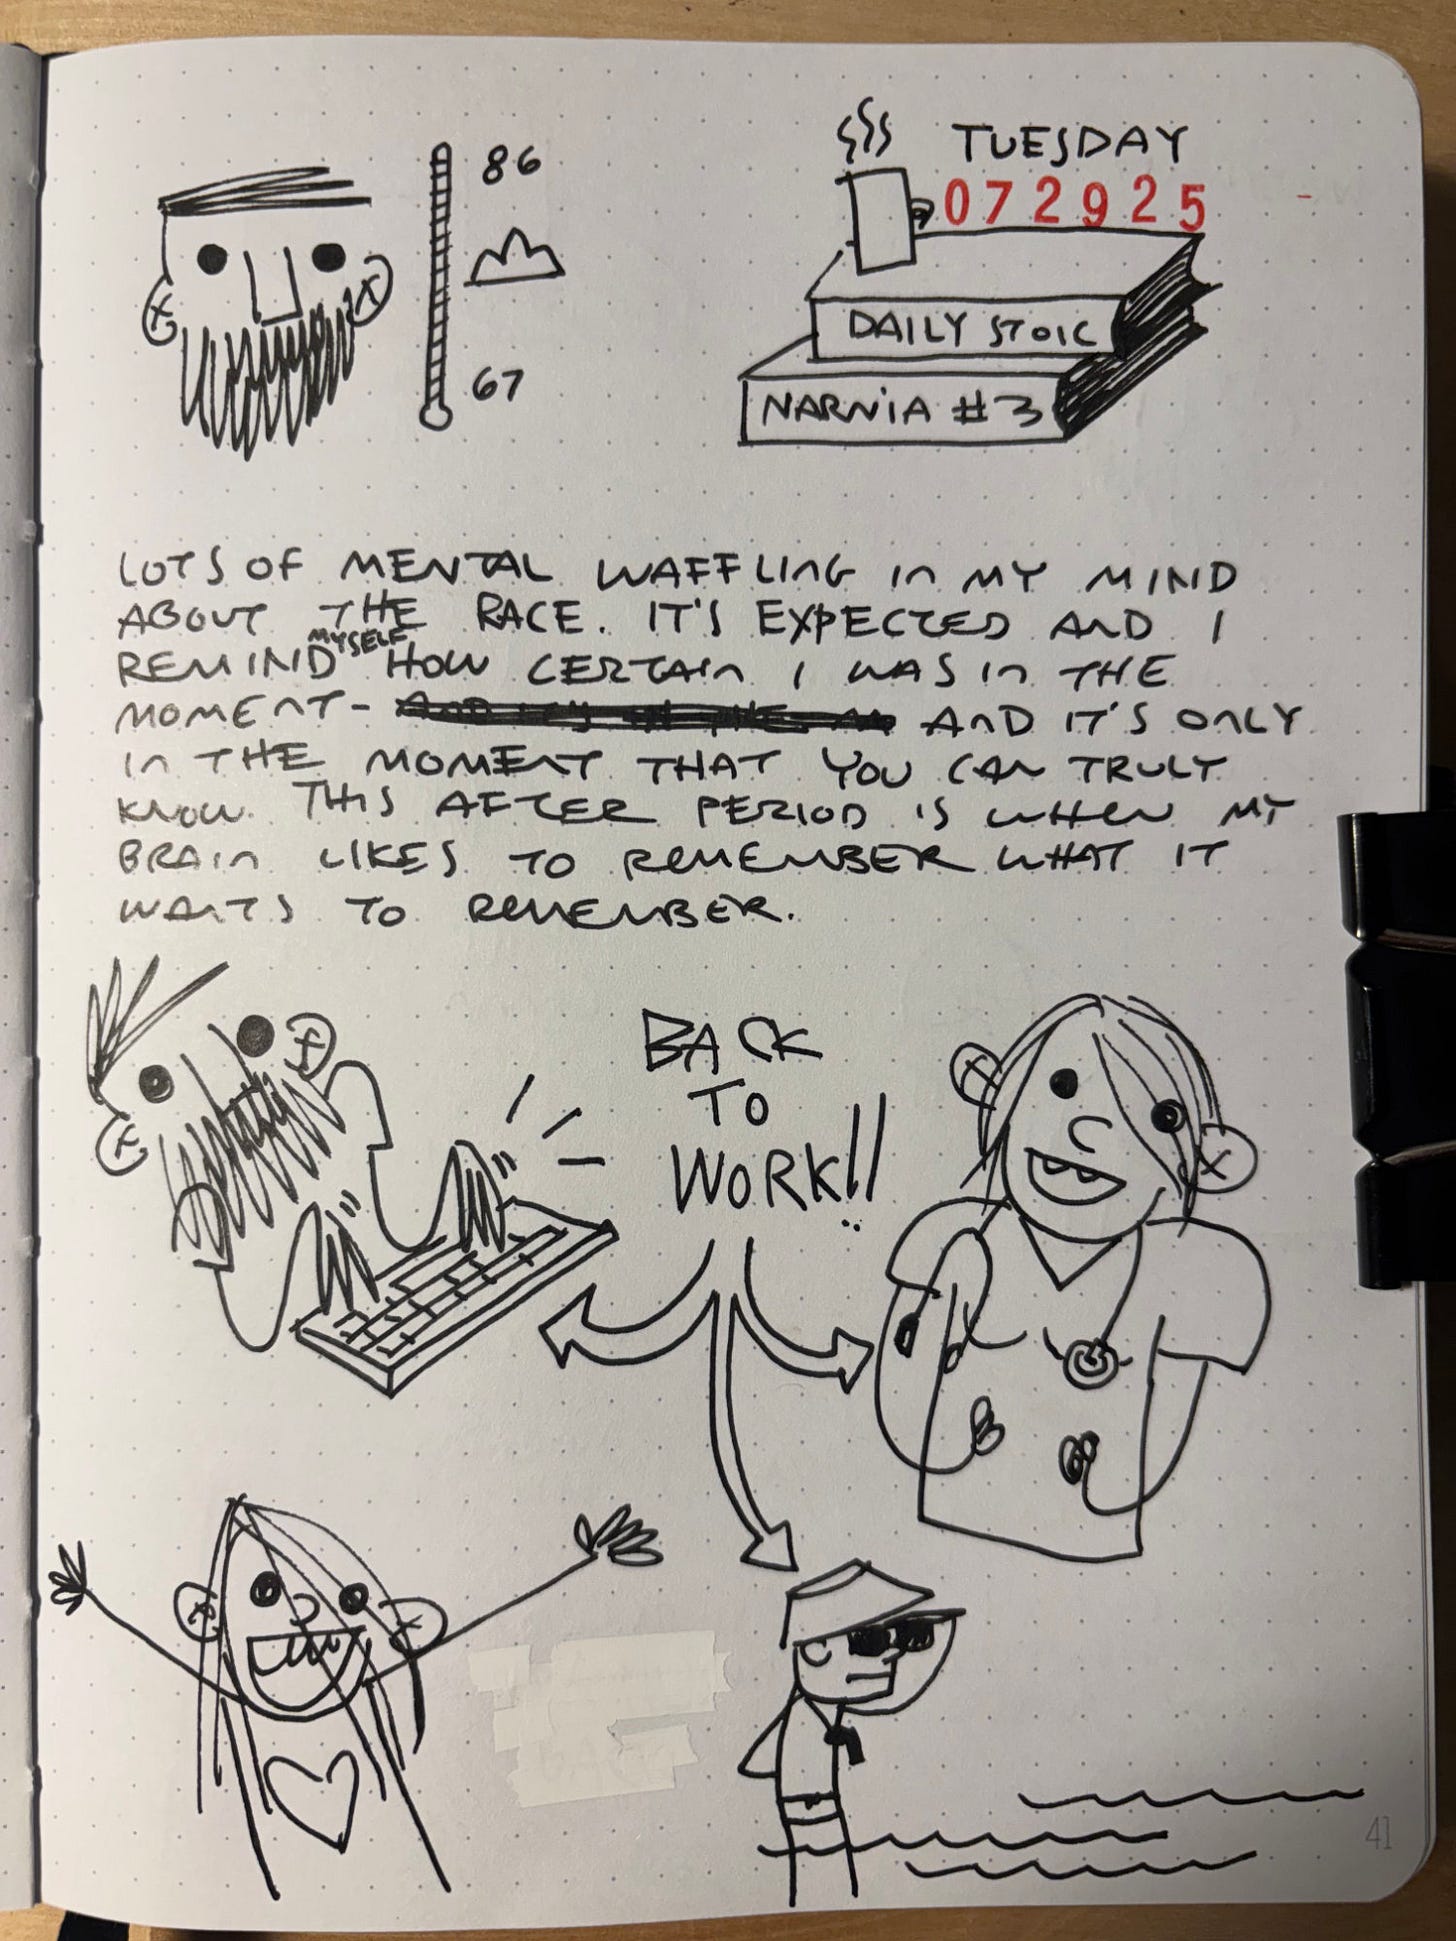 86
67
TUESDAY
072925
DAILY STOIC
NARNIA #3
LOTS OF MENTAL WAFFLING IN MY MIND
ABOUT THE RACE. IT'S EXPECTED AND I
REMIND MYSELF HOW CERTAIN I WAS IN THE
MOMENT- AND IT'S ONLY
IN THE MOMENT THAT YOU CAN TRULY
KNOW. THIS AFTER PERIOD IS WHEN MY
BRAIN LIKES TO REMEMBER WHAT IT
WANTS TO REMEMBER.
BACK
TO
WORK!!
41